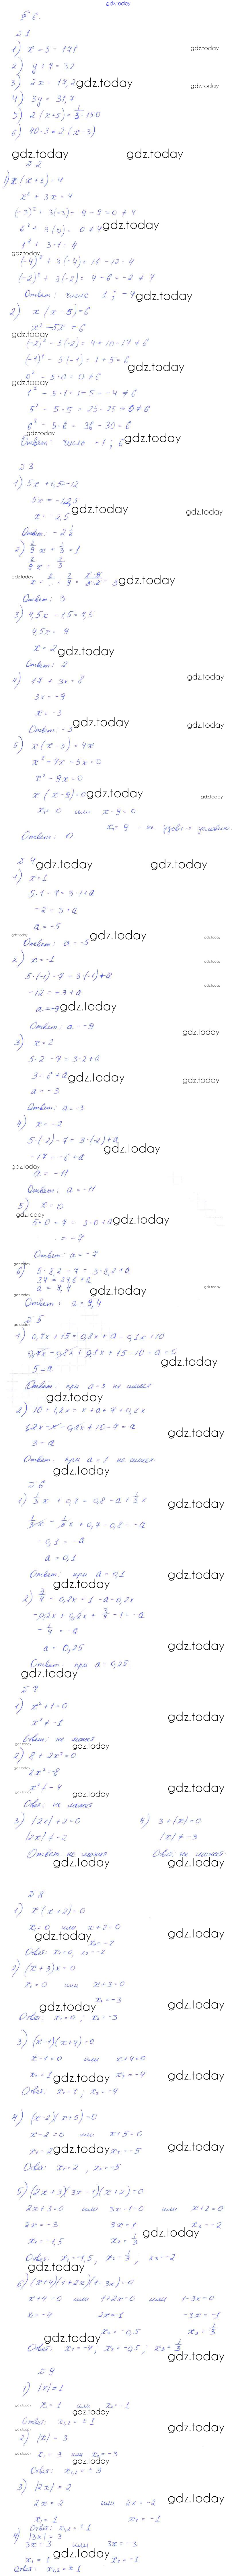 gdz.today
§ 6
№ 1
1) x - 5 = 171
2) y + 7 = 32
3) 2x = 17,2
4) 3y = 31,7
5) 2(x+5) = 1/3 · 150
6)
№ 2
1) x(x+3) = 4
x² + 3x = 4
(-3)² + 3(-3) = 9 - 9 = 0 ≠ 4
0² + 3(0) = 0 ≠ 4
1² + 3·1 = 4
(-4)² + 3(-4) = 16 - 12 = 4
(-2)² + 3(-2) = 4 - 6 = -2 ≠ 4
Ответ: числа 1; -4
2) x(x-5) = 6
x² - 5x = 6
(-2)² - 5(-2) = 4 + 10 = 14 ≠ 6
(-1)² - 5(-1) = 1 + 5 = 6
0² - 5·0 = 0 ≠ 6
1² - 5·1 = 1 - 5 = -4 ≠ 6
5² - 5·5 = 25 - 25 = 0 ≠ 6
6² - 5·6 = 36 - 30 = 6
Ответ: числа -1; 6
№ 3
1) 5x + 0,5 = -12
5x = -12,5
x = -2,5
Ответ: -2 1/2
2) 2/9 x + 1/3 = 1
2/9 x = 2/3
Ответ: 3
3) 4,5x - 1,5 = 7,5
4,5x = 9
x = 2
Ответ: 2
4) 17 + 3x = 8
3x = -9
x = -3
Ответ: -3
5) x(x-5) = 4x
x² - 4x - 5x = 0
x² - 9x = 0
x(x-9) = 0
x₁ = 0 или x - 9 = 0
x₂ = 9 - не удовл-т условию
Ответ: 0
№ 4
1) x = 1
5·1 - 7 = 3·1 + a
-2 = 3 + a
a = -5
Ответ: a = -5
2) x = -1
5·(-1) - 7 = 3·(-1) + a
-12 = -3 + a
a = -9
Ответ: a = -9
3) x = 2
5·2 - 7 = 3·2 + a
3 = 6 + a
a = -3
Ответ: a = -3
4) x = -2
5·(-2) - 7 = 3·(-2) + a
-17 = -6 + a
a = -11
Ответ: a = -11
5) x = 0
5·0 - 7 = 3·0 + a
= -7
Ответ: a = -7
6) 5·8,2 - 7 = 3·8,2 + a
34 = 24,6 + a
a = 9,4
Ответ: a = 9,4
№ 5
1) 0,7x + 15 = 0,8x + a - 0,1x + 10
0,7x - 0,8x + 0,1x + 15 - 10 - a = 0
5 = a
Ответ: при a = 3 не имеет
2) 10 + 1,2x = x + a + 7 + 0,2x
1,2x - x - 0,2x + 10 - 7 = a
3 = a
Ответ: при a = 1 не имеет.
№ 6
1) 1/3 x + 0,7 = 0,8 - a + 1/3 x
1/3 x - 1/3 x + 0,7 - 0,8 = -a
-0,1 = -a
a = 0,1
Ответ: при a = 0,1
2) 3/4 - 0,2x = 1 - a - 0,2x
-0,2x + 0,2x + 3/4 - 1 = -a
-1/4 = -a
a = 0,25
Ответ: при a = 0,25.
№ 7
1) x² + 1 = 0
x² ≠ -1
Ответ: не может
2) 8 + 2x² = 0
2x² = -8
x² ≠ -4
Ответ: не может
3) |2x| + 2 = 0
|2x| ≠ -2
Ответ: не может
4) 3 + |x| = 0
|x| ≠ -3
Ответ: не может.
№ 8
1) x(x+2) = 0
x₁ = 0 или x + 2 = 0
x₂ = -2
Ответ: x₁ = 0, x₂ = -2
2) (x+3)x = 0
x₁ = 0 или x + 3 = 0
x₂ = -3
Ответ: x₁ = 0; x₂ = -3
3) (x-1)(x+4) = 0
x - 1 = 0 или x + 4 = 0
x₁ = 1 x₂ = -4
Ответ: x₁ = 1; x₂ = -4
4) (x-2)(x+5) = 0
x - 2 = 0 или x + 5 = 0
x₁ = 2 x₂ = -5
Ответ: x₁ = 2, x₂ = -5
5) (2x+3)(3x-1)(x+2) = 0
2x + 3 = 0 или 3x - 1 = 0 или x + 2 = 0
2x = -3 3x = 1 x₃ = -2
x₁ = -1,5 x₂ = 1/3
Ответ: x₁ = -1,5, x₂ = 1/3, x₃ = -2
6) (x+4)(1+2x)(1-3x) = 0
x + 4 = 0 или 1 + 2x = 0 или 1 - 3x = 0
x₁ = -4 2x = -1 -3x = -1
x₂ = -0,5 x₃ = 1/3
Ответ: x₁ = -4, x₂ = -0,5; x₃ = 1/3
№ 9
1) |x| = 1
x₁ = 1 или x₂ = -1
Ответ: x₁,₂ = ±1
2) |x| = 3
x₁ = 3 или x₂ = -3
Ответ: x₁,₂ = ±3
3) |2x| = 2
2x = 2 или 2x = -2
x₁ = 1 x₂ = -1
Ответ: x₁,₂ = ±1
4) |3x| = 3
3x = 3 или 3x = -3
x₁ = 1 x₂ = -1
Ответ: x₁,₂ = ±1